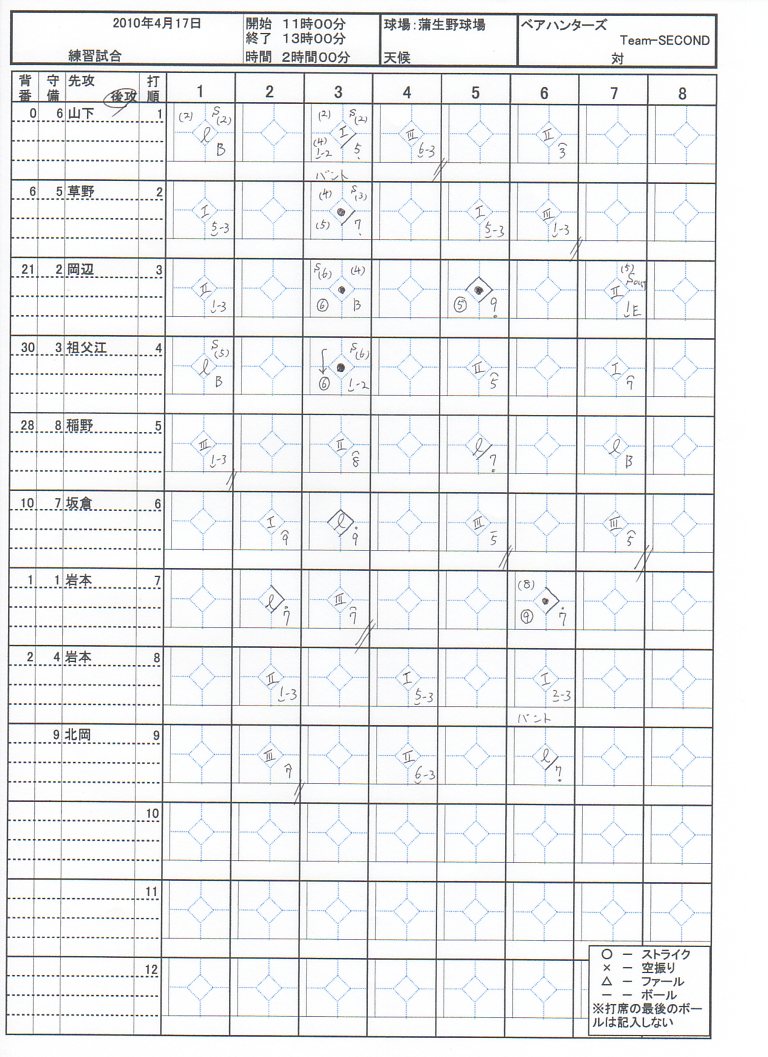 2010年4月17日
練習試合
開始 11時00分
終了 13時00分
時間 2時間00分
球場：蒲生野球場
天候
ベアハンターズ
Team-SECOND
対
背番 守備 先攻 後攻 打順 1 2 3 4 5 6 7 8
0 6 山下 1
(2) S(2) l B
(2) S(2) (4) I 1-2 5
III 6-3
II 3
バント
6 5 草野 2
I 5-3
(4) S(3) (5) 7
I 5-3
III 1-3
21 2 岡辺 3
II 1-3
S(6) (4) ⑥ B
⑤ 9
(5) II 1E
30 3 祖父江 4
S(5) l B
S(6) ⑥ 1-2
II 5
I 7
28 8 稲野 5
III 1-3
II 8
l 7
l B
10 7 坂倉 6
I 9
l 9
III 5
III 5
1 1 岩本 7
l 7
III 7
(8) ⑨ 7
2 4 岩本 8
II 1-3
I 5-3
I 2-3
バント
9 北岡 9
III 7
II 6-3
l 7
10
11
12
○ － ストライク
× － 空振り
△ － ファール
－ － ボール
※打席の最後のボー
ルは記入しない